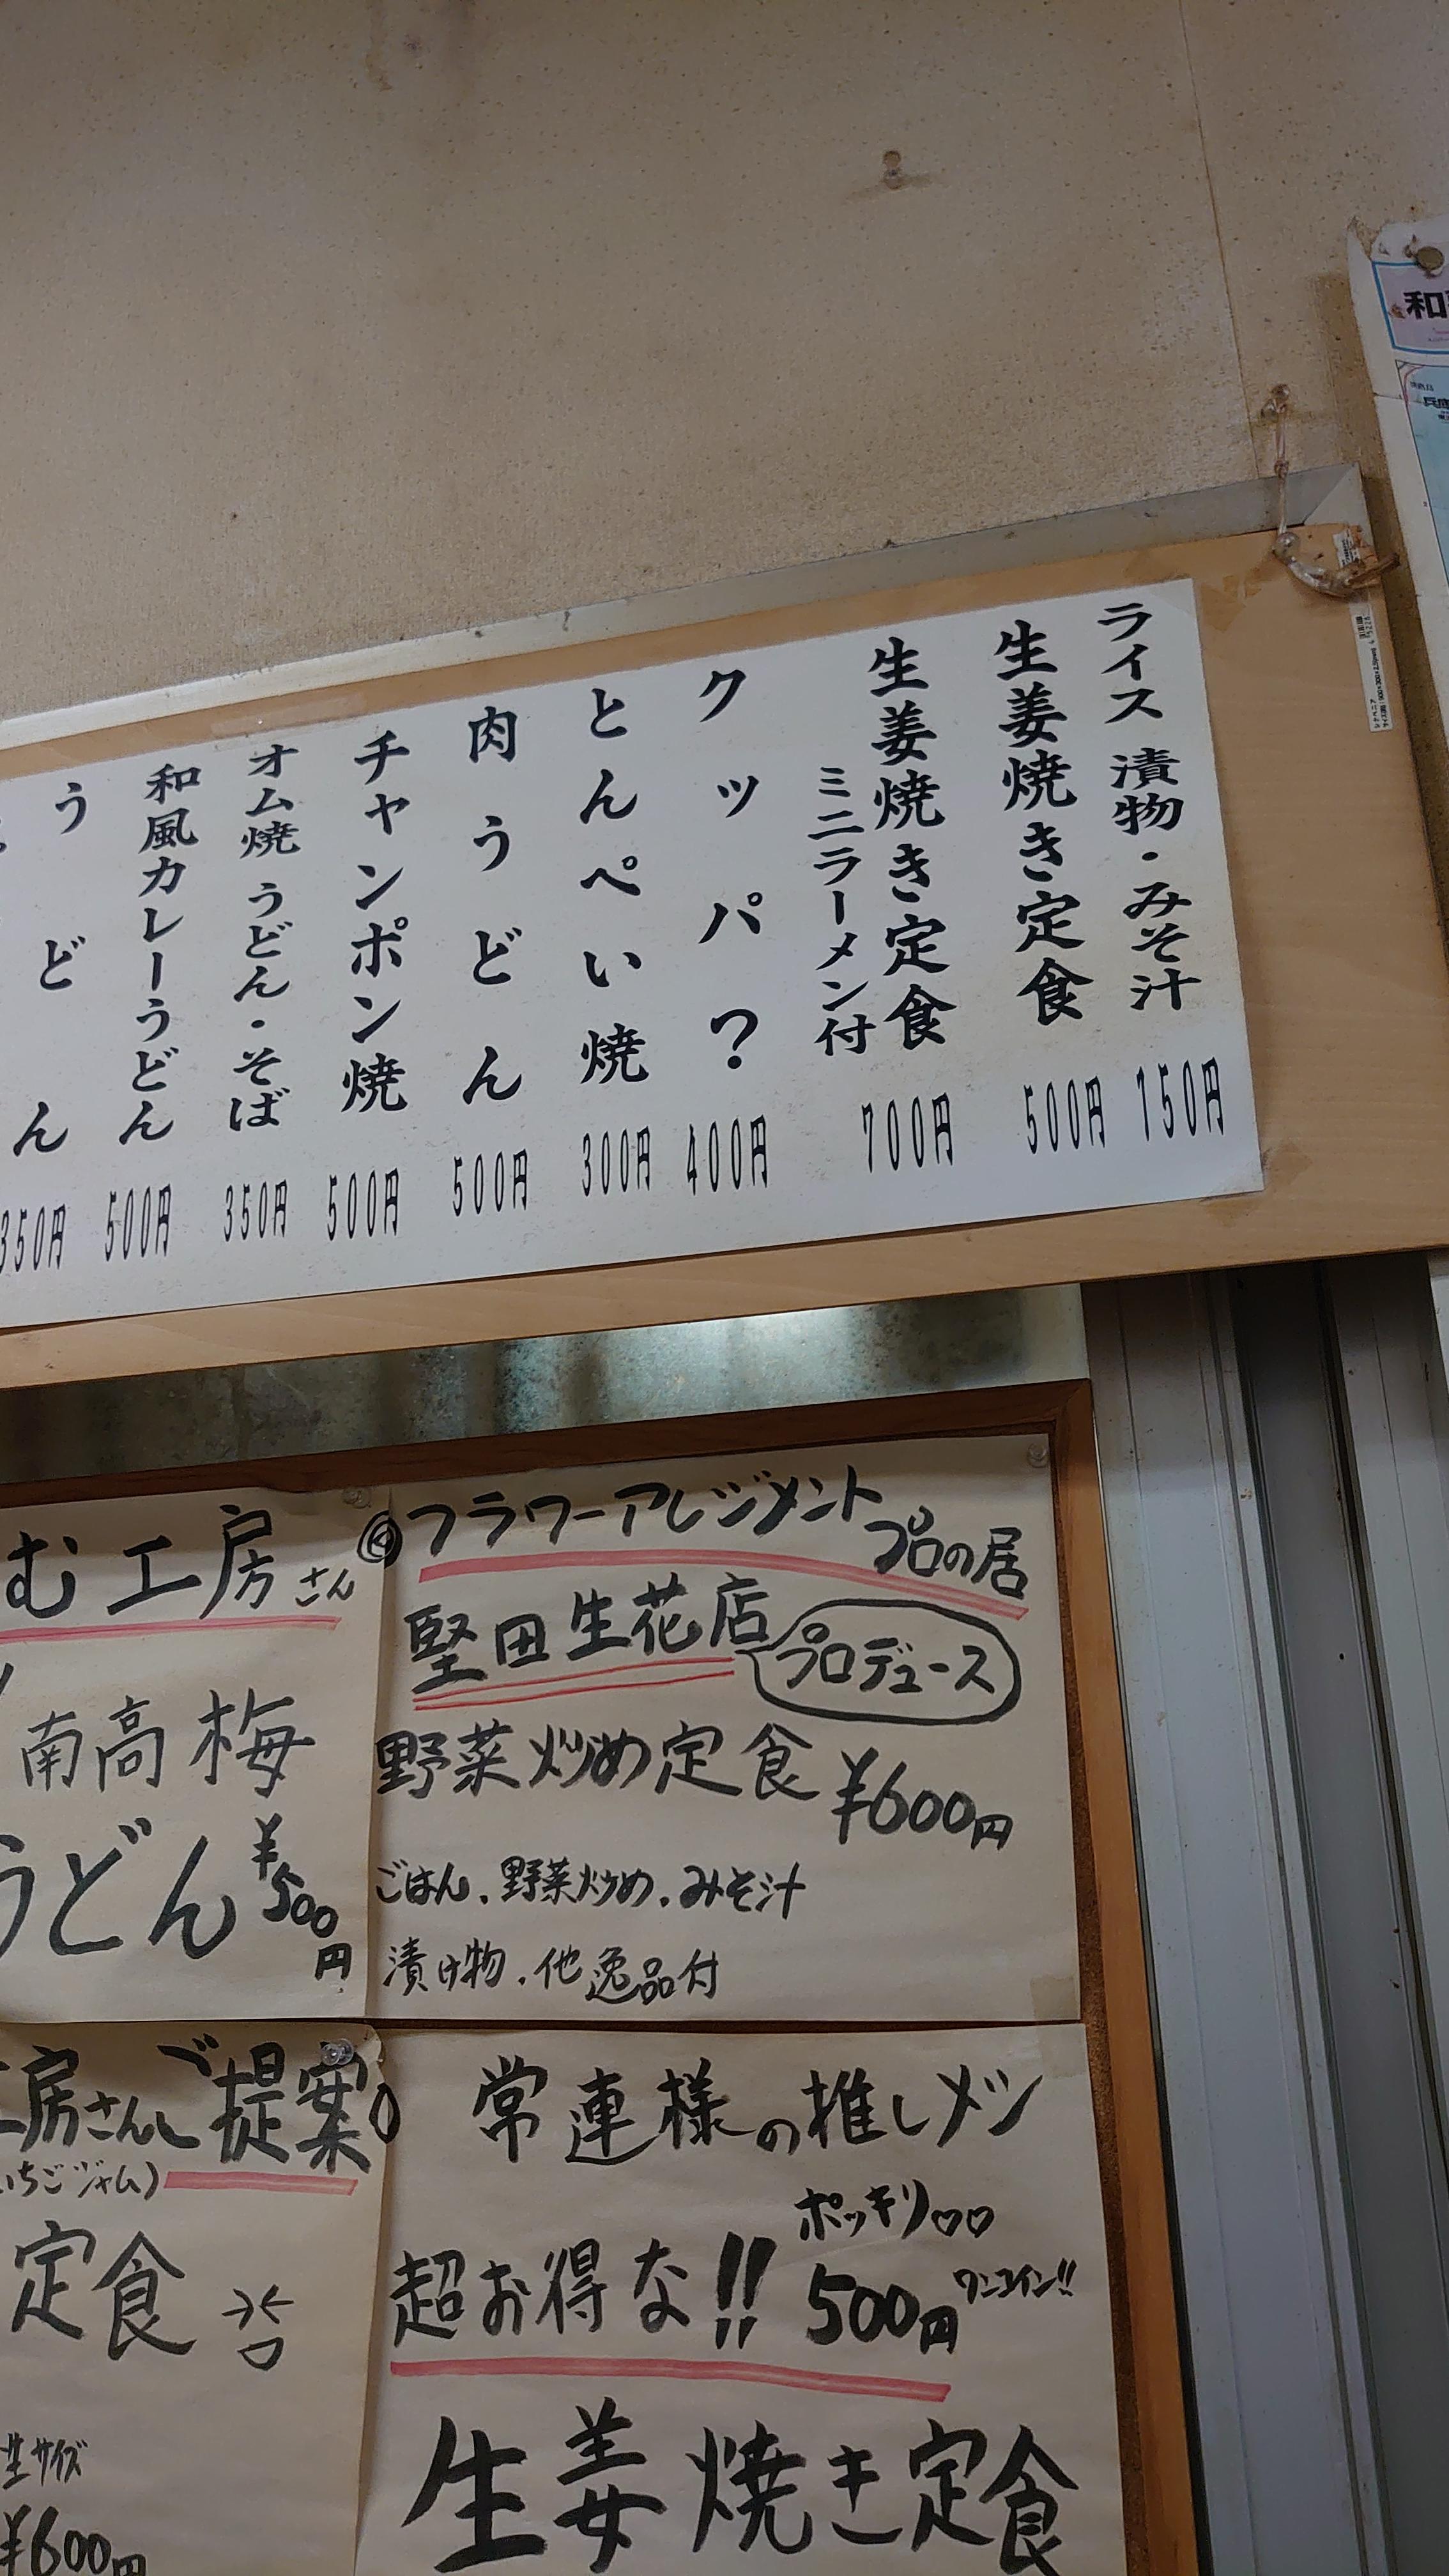 ライス 漬物・みそ汁 150円
生姜焼き定食 500円
生姜焼き定食
ミニラーメン付 700円
クッパ? 400円
とんぺい焼 300円
肉うどん 500円
チャンポン焼 500円
オム焼 うどん・そば 350円
和風カレーうどん 500円
うどん 350円
和
兵庫
む工房さん
南高梅
うどん ¥500円
フラワーアレンジメント
プロの居
堅田生花店
プロデュース
野菜炒め定食 ¥600円
ごはん、野菜炒め、みそ汁
漬け物、他逸品付
工房さんご提案
いちごジャム)
定食
生サイズ
¥600円
常連様の推しメシ
超お得な!! ポッキリ♡♡
500円 ワンコイン!!
生姜焼き定食